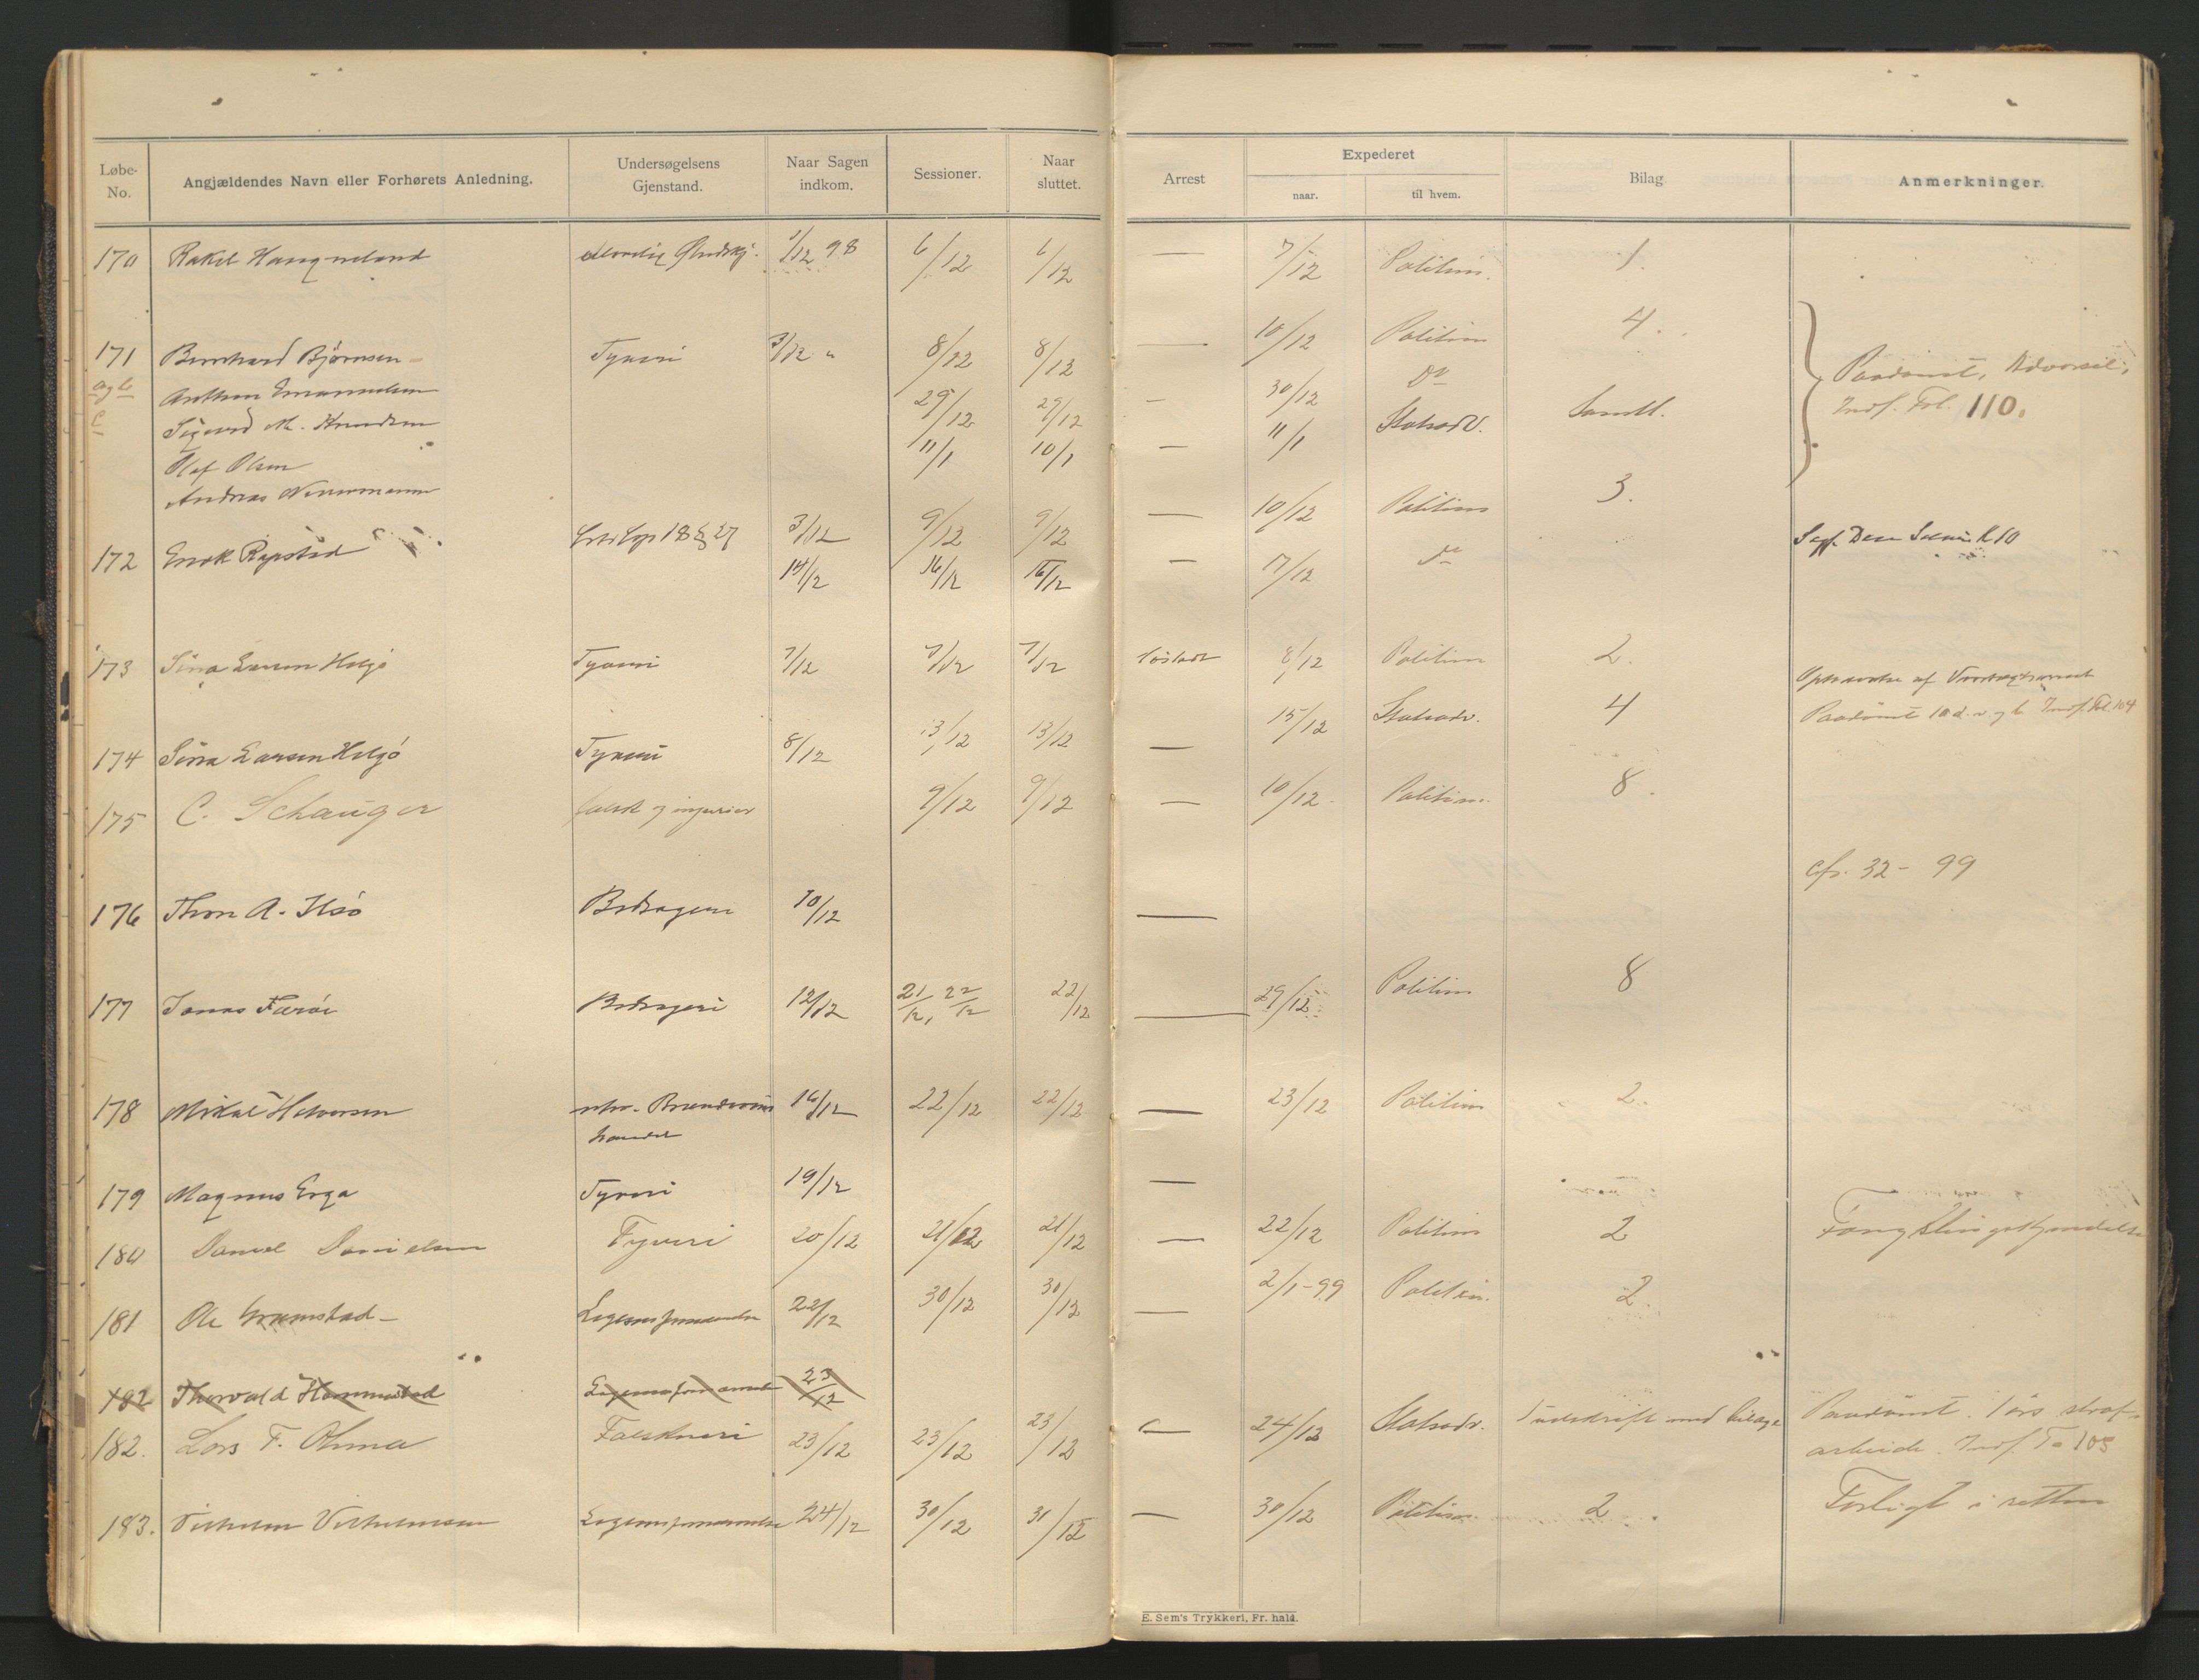 Løbe-No. Angjældendes Navn eller Forhørets Anledning. Undersøgelsens Gjenstand. Naar Sagen indkom. Sessioner. Naar sluttet. Arrest Expederet naar. til hvem. Bilag Anmerkninger.
170 Rakel 1/12 98 6/12 6/12 — 7/12 Politim. 1.
171 Bernhard Björnsen Tyveri 3/12 " 8/12 8/12 — 10/12 Politim 4.
a og b Anthon Emanuelsen 29/12 29/12 — 30/12 Do
c Sigurd M. Knudsen 11/1 10/1 — 11/1 Statsadv. Samtl. Paadömt, Indf. Fol. 110.
Olaf Olsen
Andreas
172 Enok Cap 18 § 27 3/12 9/12 9/12 — 10/12 Politim 3.
14/12 16/12 16/12 — 17/12 Do
173 Sina Larsen Helgö Tyveri 7/12 7/12 7/12 8/12 Politim 2.
174 Sina Larsen Helgö Tyveri 8/12 13/12 13/12 — 15/12 Statsadv. 4 Paadömt Indf. Fol. 104
175 C. Schauger falsk og injurier 9/12 9/12 — 10/12. Politim. 8.
176 A. Bedrageri 10/12 — cfr. 32 - 99
177 Jonas Færöi Bedrageri 12/12 21/12, 22/12 22/12 — 29/12 Politim 8
178 Mikal Halvorsen ulov. Brændevins 16/12 22/12 22/12 — 23/12 Politim 2.
handel
179 Magnus Erga Tyveri 19/12 —
180 Daniel Danielsen Tyveri 20/12 21/12 21/12 — 22/12 Politim 2 Fængslingskjendelse
181 Ole Legemsfornærmelse 22/12 30/12 30/12 — 2/1-99 Politim. 2.
182 Thorvald Legemsfornærmelse 23/12
182. Lars T. Falskneri 23/12 23/12 23/12 — 24/12 Statsadv. Udskrift med bilage Paadömt. 1 års straf-
arbeide. Indf. Fo 105
183. Vilhelm Vilhelmsen Legemsfornærmelse 24/12 30/12 31/12 — 30/12 Politim. 2 Forligt i retten
E. Sem's Trykkeri, Fr. hald.